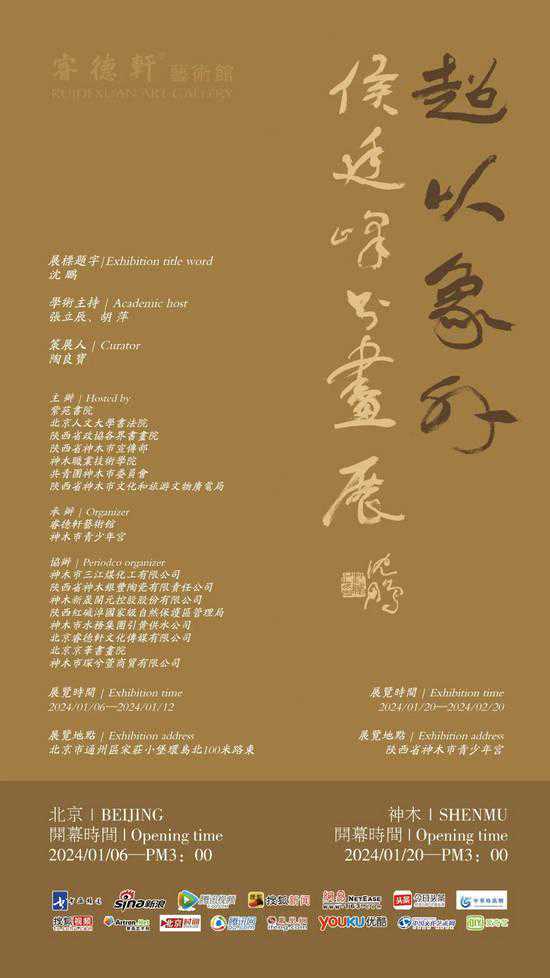 睿德軒藝術館
RUIDEXUAN ART GALLERY
超以象外
侯廷峰书畫展
沈鵬
展標題字|Exhibition title word
沈鵬
學術主持 | Academic host
張立辰、胡萍
策展人 | Curator
陶良寶
主辦 | Hosted by
紫苑書院
北京人文大學書法院
陝西省政協各界書畫院
陝西省神木市宣傳部
神木職業技術學院
共青團神木市委員會
陝西省神木市文化和旅游文物廣電局
承辦 | Organizer
睿德軒藝術館
神木市青少年宮
協辦 | Periodco organizer
神木市三江煤化工有限公司
陝西省神木銀豐陶瓷有限責任公司
神木新晟開元控股股份有限公司
陝西紅碱淖國家級自然保護區管理局
神木市水務集團引黄供水公司
北京睿德軒文化傳媒有限公司
北京京華書畫院
神木市琛兮萱商貿有限公司
展覽時間 | Exhibition time
2024/01/06—2024/01/12
展覽地點 | Exhibition address
北京市通州區宋莊小堡環島北100米路東
展覽時間 | Exhibition time
2024/01/20—2024/02/20
展覽地點 | Exhibition address
陝西省神木市青少年宮
北京 | BEIJING
開幕時間 | Opening time
2024/01/06—PM3：00
神木 | SHENMU
開幕時間 | Opening time
2024/01/20—PM3：00
sina新浪
腾讯视频
搜狐新闻
網易 NETEASE
www.163.com
头条 今日头条
搜狐视频
tv.sohu.com
Artron.Net
北京时间
腾讯网
凤凰网
ifeng.com
YOUKU优酷
中国文化艺术网
爱奇艺